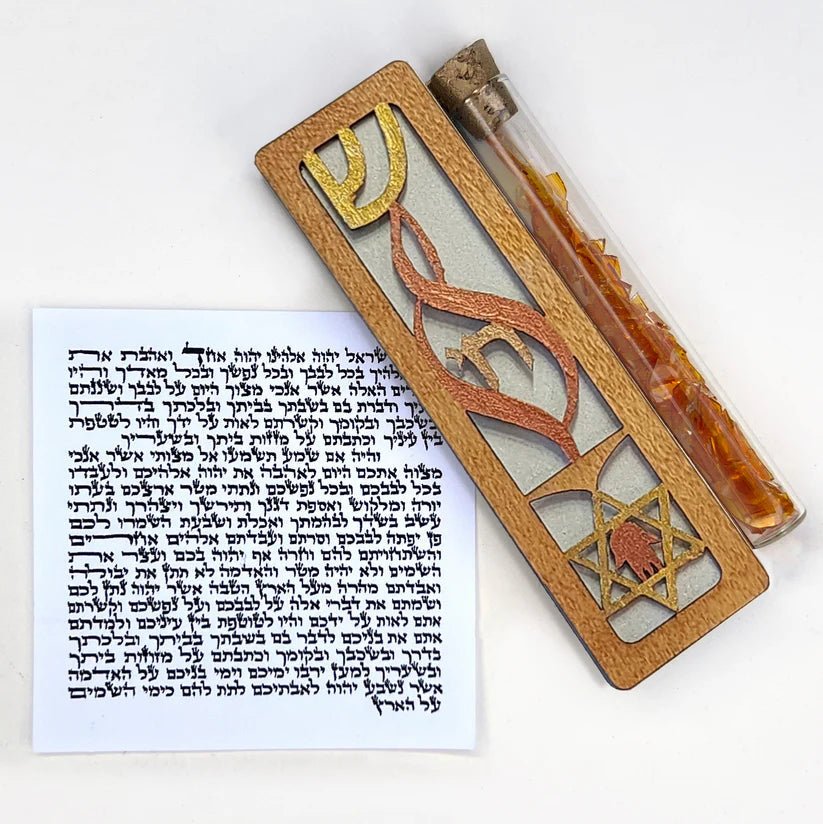 יהוה אלהינו יהוה אחד ואהבת את
בכל לבבך ובכל נפשך ובכל מאדך והיו
האלה אשר אנכי מצוך היום על לבבך ושננתם
ודברת בם בשבתך בביתך ובלכתך בדרך
ובשכבך ובקומך וקשרתם לאות על ידך והיו לטטפת
בין עיניך וכתבתם על מזזות ביתך ובשעריך
והיה אם שמע תשמעו אל מצותי אשר אנכי
מצוה אתכם היום לאהבה את יהוה אלהיכם ולעבדו
בכל לבבכם ובכל נפשכם ונתתי מטר ארצכם בעתו
יורה ומלקוש ואספת דגנך ותירשך ויצהרך ונתתי
עשב בשדך לבהמתך ואכלת ושבעת השמרו לכם
פן יפתה לבבכם וסרתם ועבדתם אלהים אחרים
והשתחויתם להם וחרה אף יהוה בכם ועצר את
השמים ולא יהיה מטר והאדמה לא תתן את יבולה
ואבדתם מהרה מעל הארץ הטבה אשר יהוה נתן לכם
ושמתם את דברי אלה על לבבכם ועל נפשכם וקשרתם
אתם לאות על ידכם והיו לטוטפת בין עיניכם ולמדתם
אתם את בניכם לדבר בם בשבתך בביתך ובלכתך
בדרך ובשכבך ובקומך וכתבתם על מזוזות ביתך
ובשעריך למען ירבו ימיכם וימי בניכם על האדמה
אשר נשבע יהוה לאבתיכם לתת להם כימי השמים
על הארץ
ש
חי